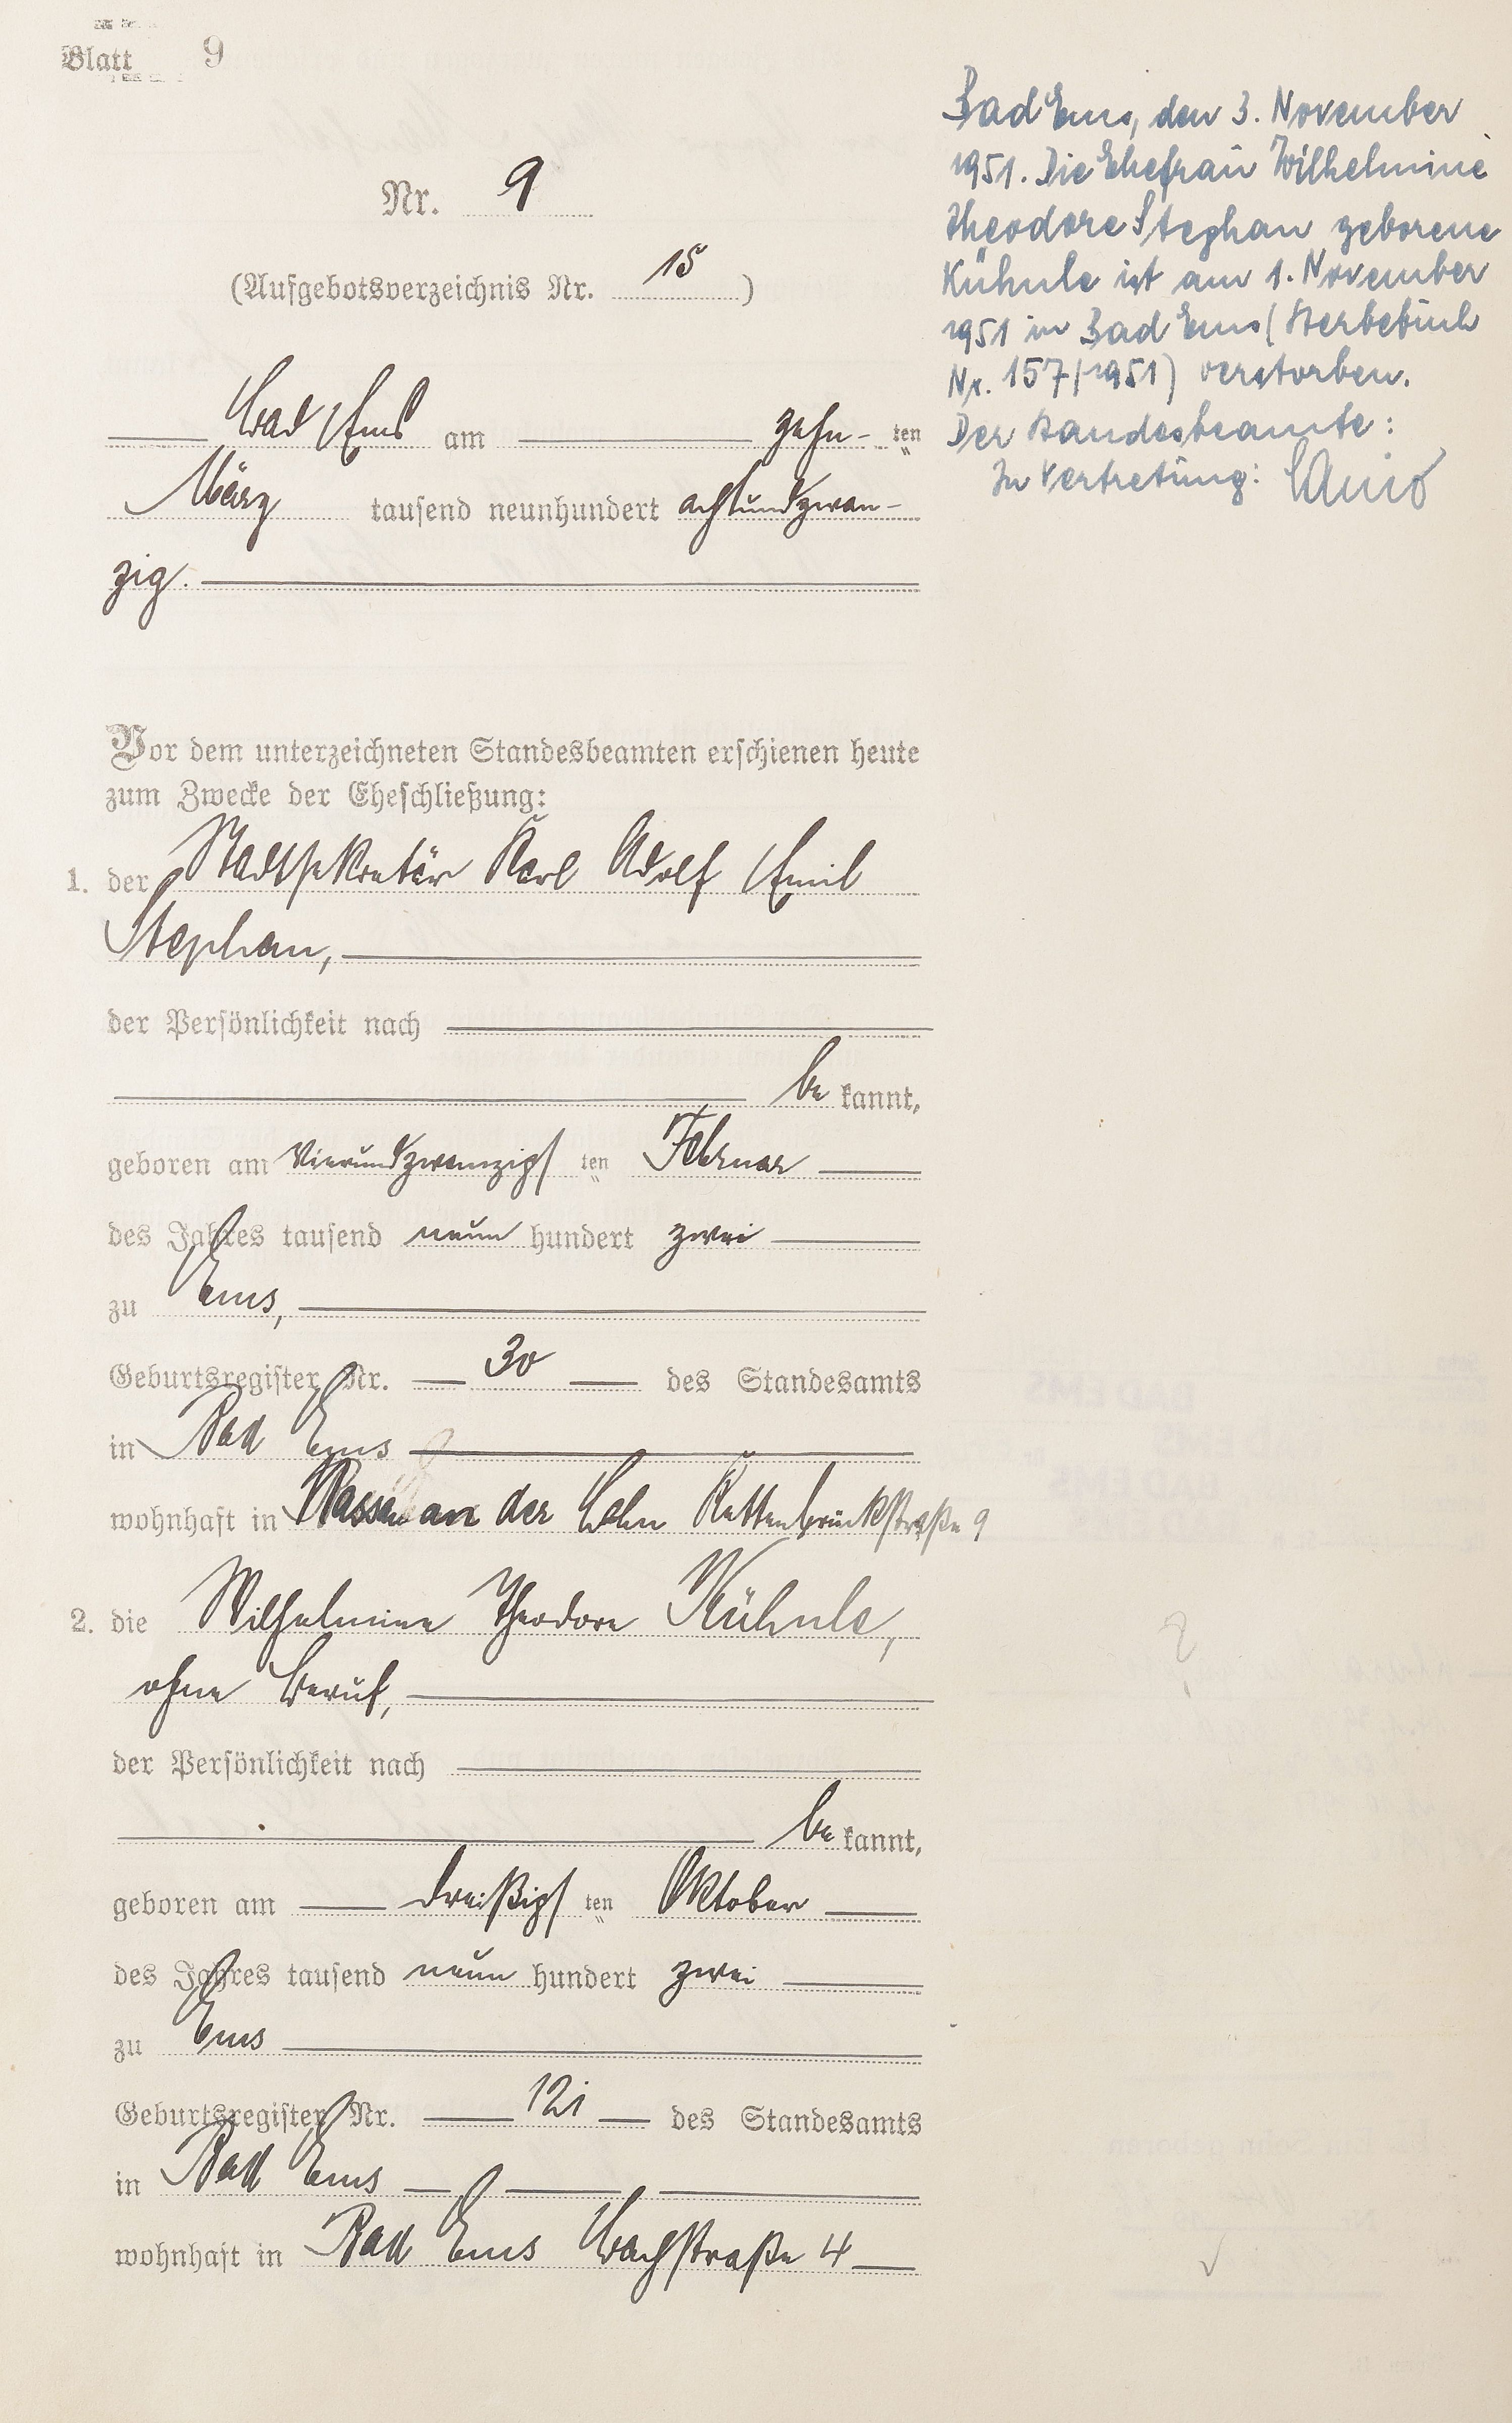 Blatt 9
Nr. 9
(Aufgebotsverzeichnis Nr. 15)
Bad Ems am zehn- ten
März tausend neunhundert achtundzwan-
zig.
Vor dem unterzeichneten Standesbeamten erschienen heute
zum Zwecke der Eheschließung:
1. der Stadtsekretär Karl Adolf Emil
Stephan,
der Persönlichkeit nach
be kannt,
geboren am vierundzwanzigs ten Februar
des Jahres tausend neun hundert zwei
zu Ems,
Geburtsregister Nr. 30 des Standesamts
in Bad Ems
wohnhaft in Nassau an der Lahn Kettenbrückstraße 9
2. die Wilhelmine Theodore Kühnle,
ohne Beruf,
der Persönlichkeit nach
be kannt,
geboren am dreißigs ten Oktober
des Jahres tausend neun hundert zwei
zu Ems
Geburtsregister Nr. 121 des Standesamts
in Bad Ems
wohnhaft in Bad Ems Bachstraße 4
Bad Ems, den 3. November
1951. Die Ehefrau Wilhelmine
Theodore Stephan geborene
Kühnle ist am 1. November
1951 in Bad Ems (Sterbebuch
Nr. 157/1951) verstorben.
Der Standesbeamte:
In Vertretung: